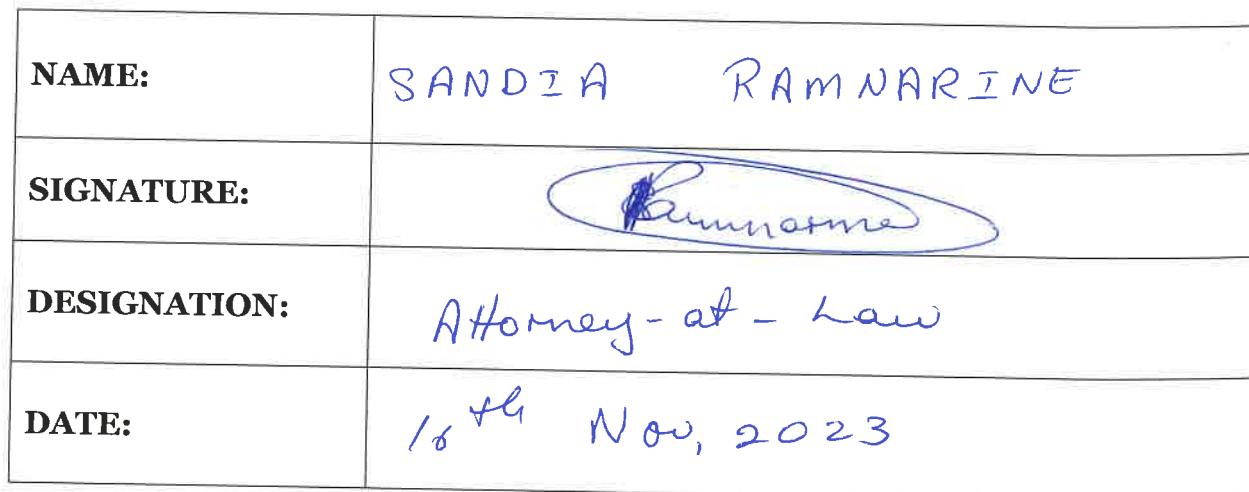 NAME: SANDIA RAMNARINE
SIGNATURE: Ramnarine
DESIGNATION: Attorney-at-Law
DATE: 16th Nov, 2023